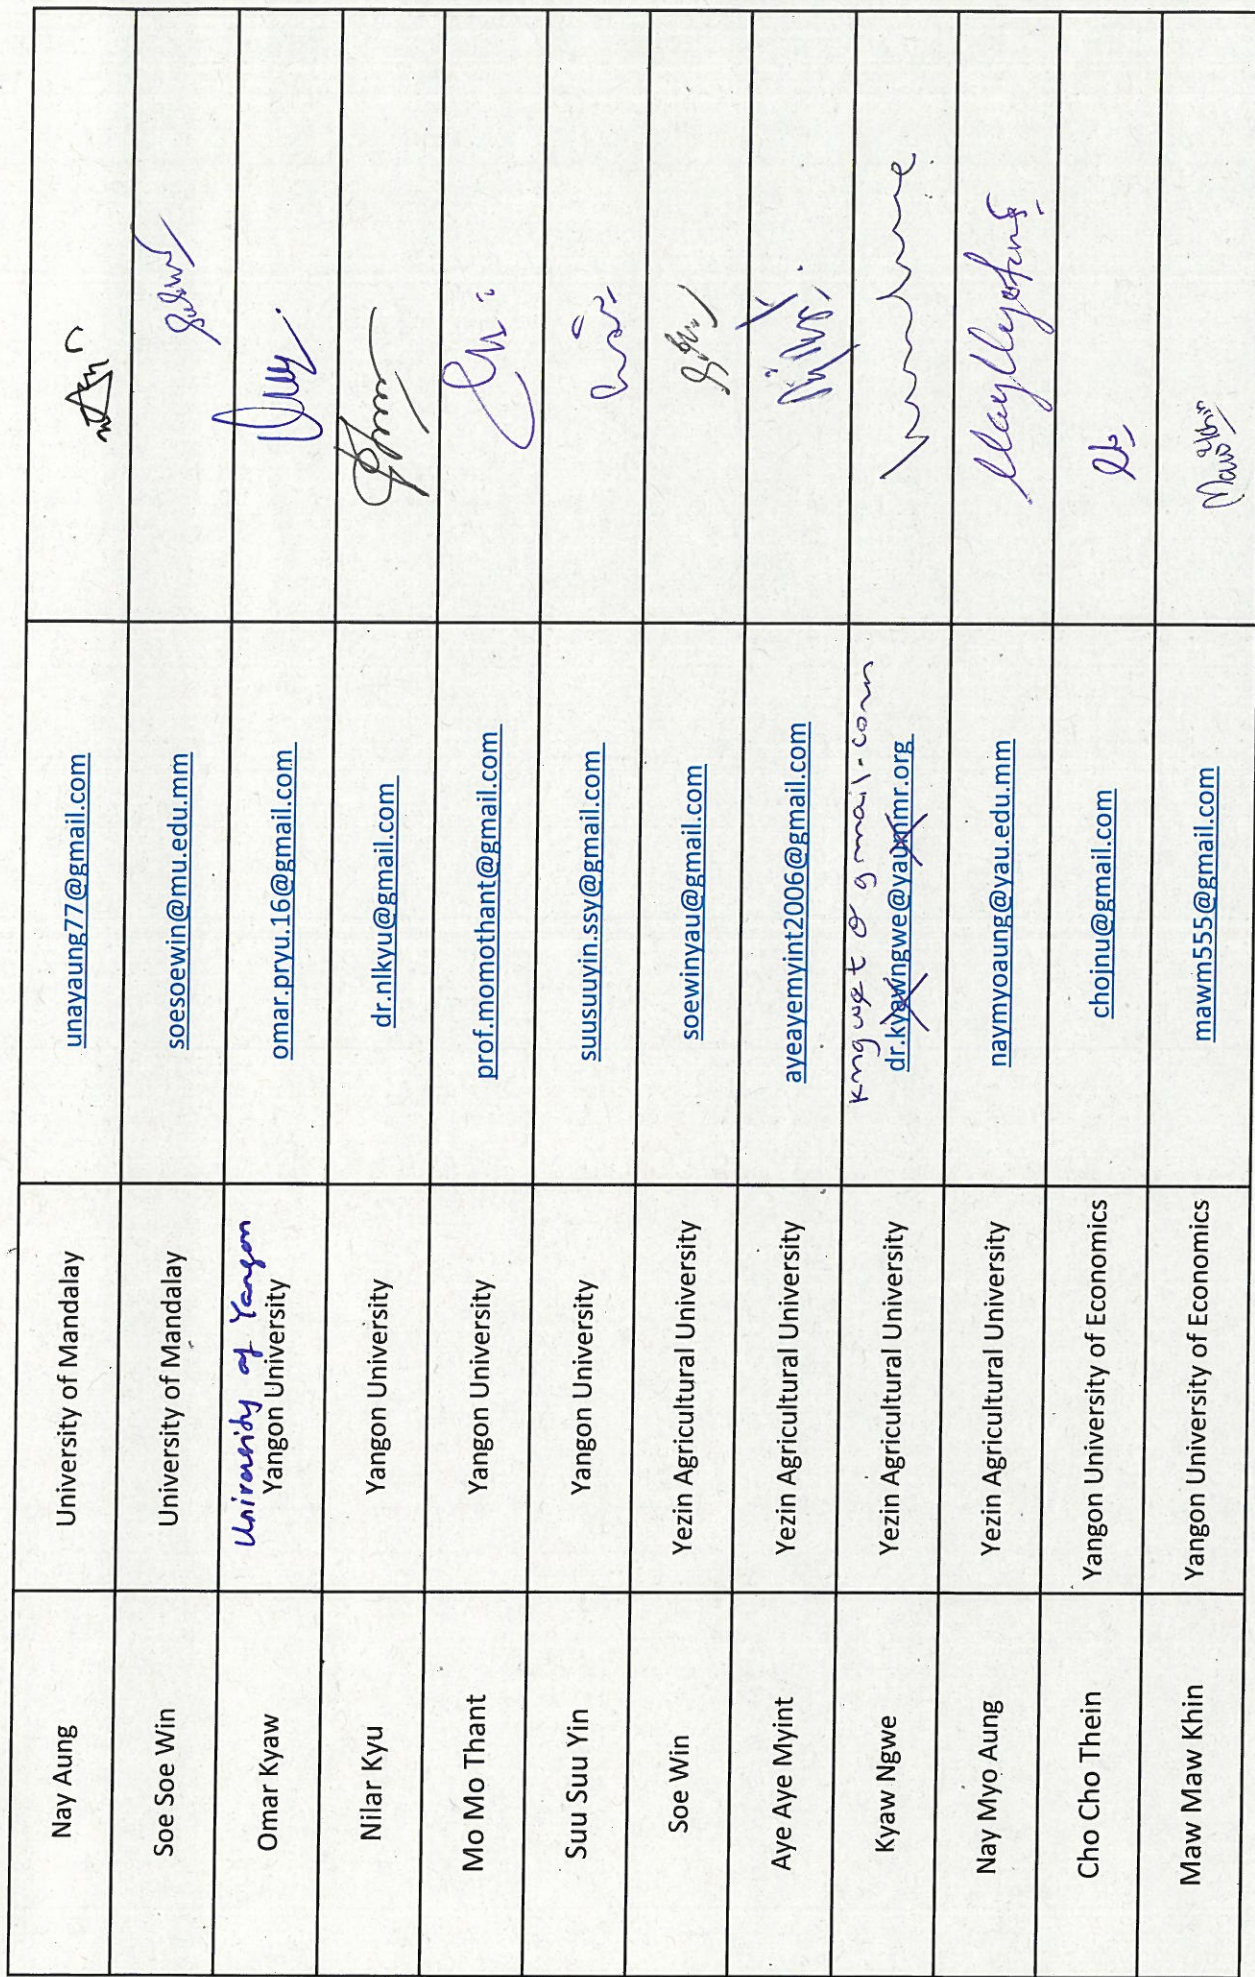 Nay Aung University of Mandalay unayaung77@gmail.com
Soe Soe Win University of Mandalay soesoewin@mu.edu.mm
University of Yangon
Omar Kyaw Yangon University omar.pryu.16@gmail.com
Nilar Kyu Yangon University dr.nlkyu@gmail.com
Mo Mo Thant Yangon University prof.momothant@gmail.com
Suu Suu Yin Yangon University suusuuyin.ssy@gmail.com
Soe Win Yezin Agricultural University soewinyau@gmail.com
Aye Aye Myint Yezin Agricultural University ayeayemyint2006@gmail.com
gmail.com
Kyaw Ngwe Yezin Agricultural University dr.kyawngwe@yaummr.org
Nay Myo Aung Yezin Agricultural University naymyoaung@yau.edu.mm
Cho Cho Thein Yangon University of Economics chojnu@gmail.com
Maw Maw Khin Yangon University of Economics mawm555@gmail.com